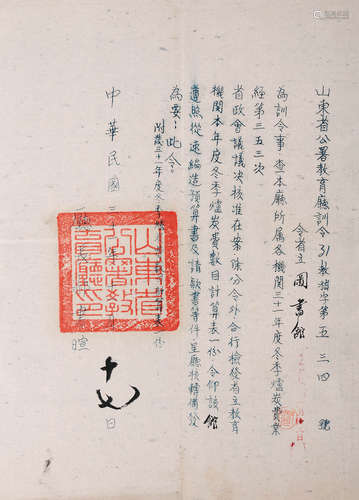 山東省公署教育廳訓令 31教指字第五三四號
令省立圖書館
為訓令事查本廳所属各機關三十一年度冬季爐炭費業
經第三五三次
省政會議議决核准在案除分令外合行檢發省立教育
機關本年度冬季爐炭費数目計算表一份令仰該館
遵照從速編造預算書及請款書等件呈廳核轉備發
為要：此令。
附發三十一年度冬季
份
中華民國三
十七日
山東省公署教育廳印